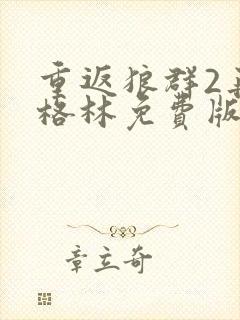 重返狼群2再
格林免费版
章立奇